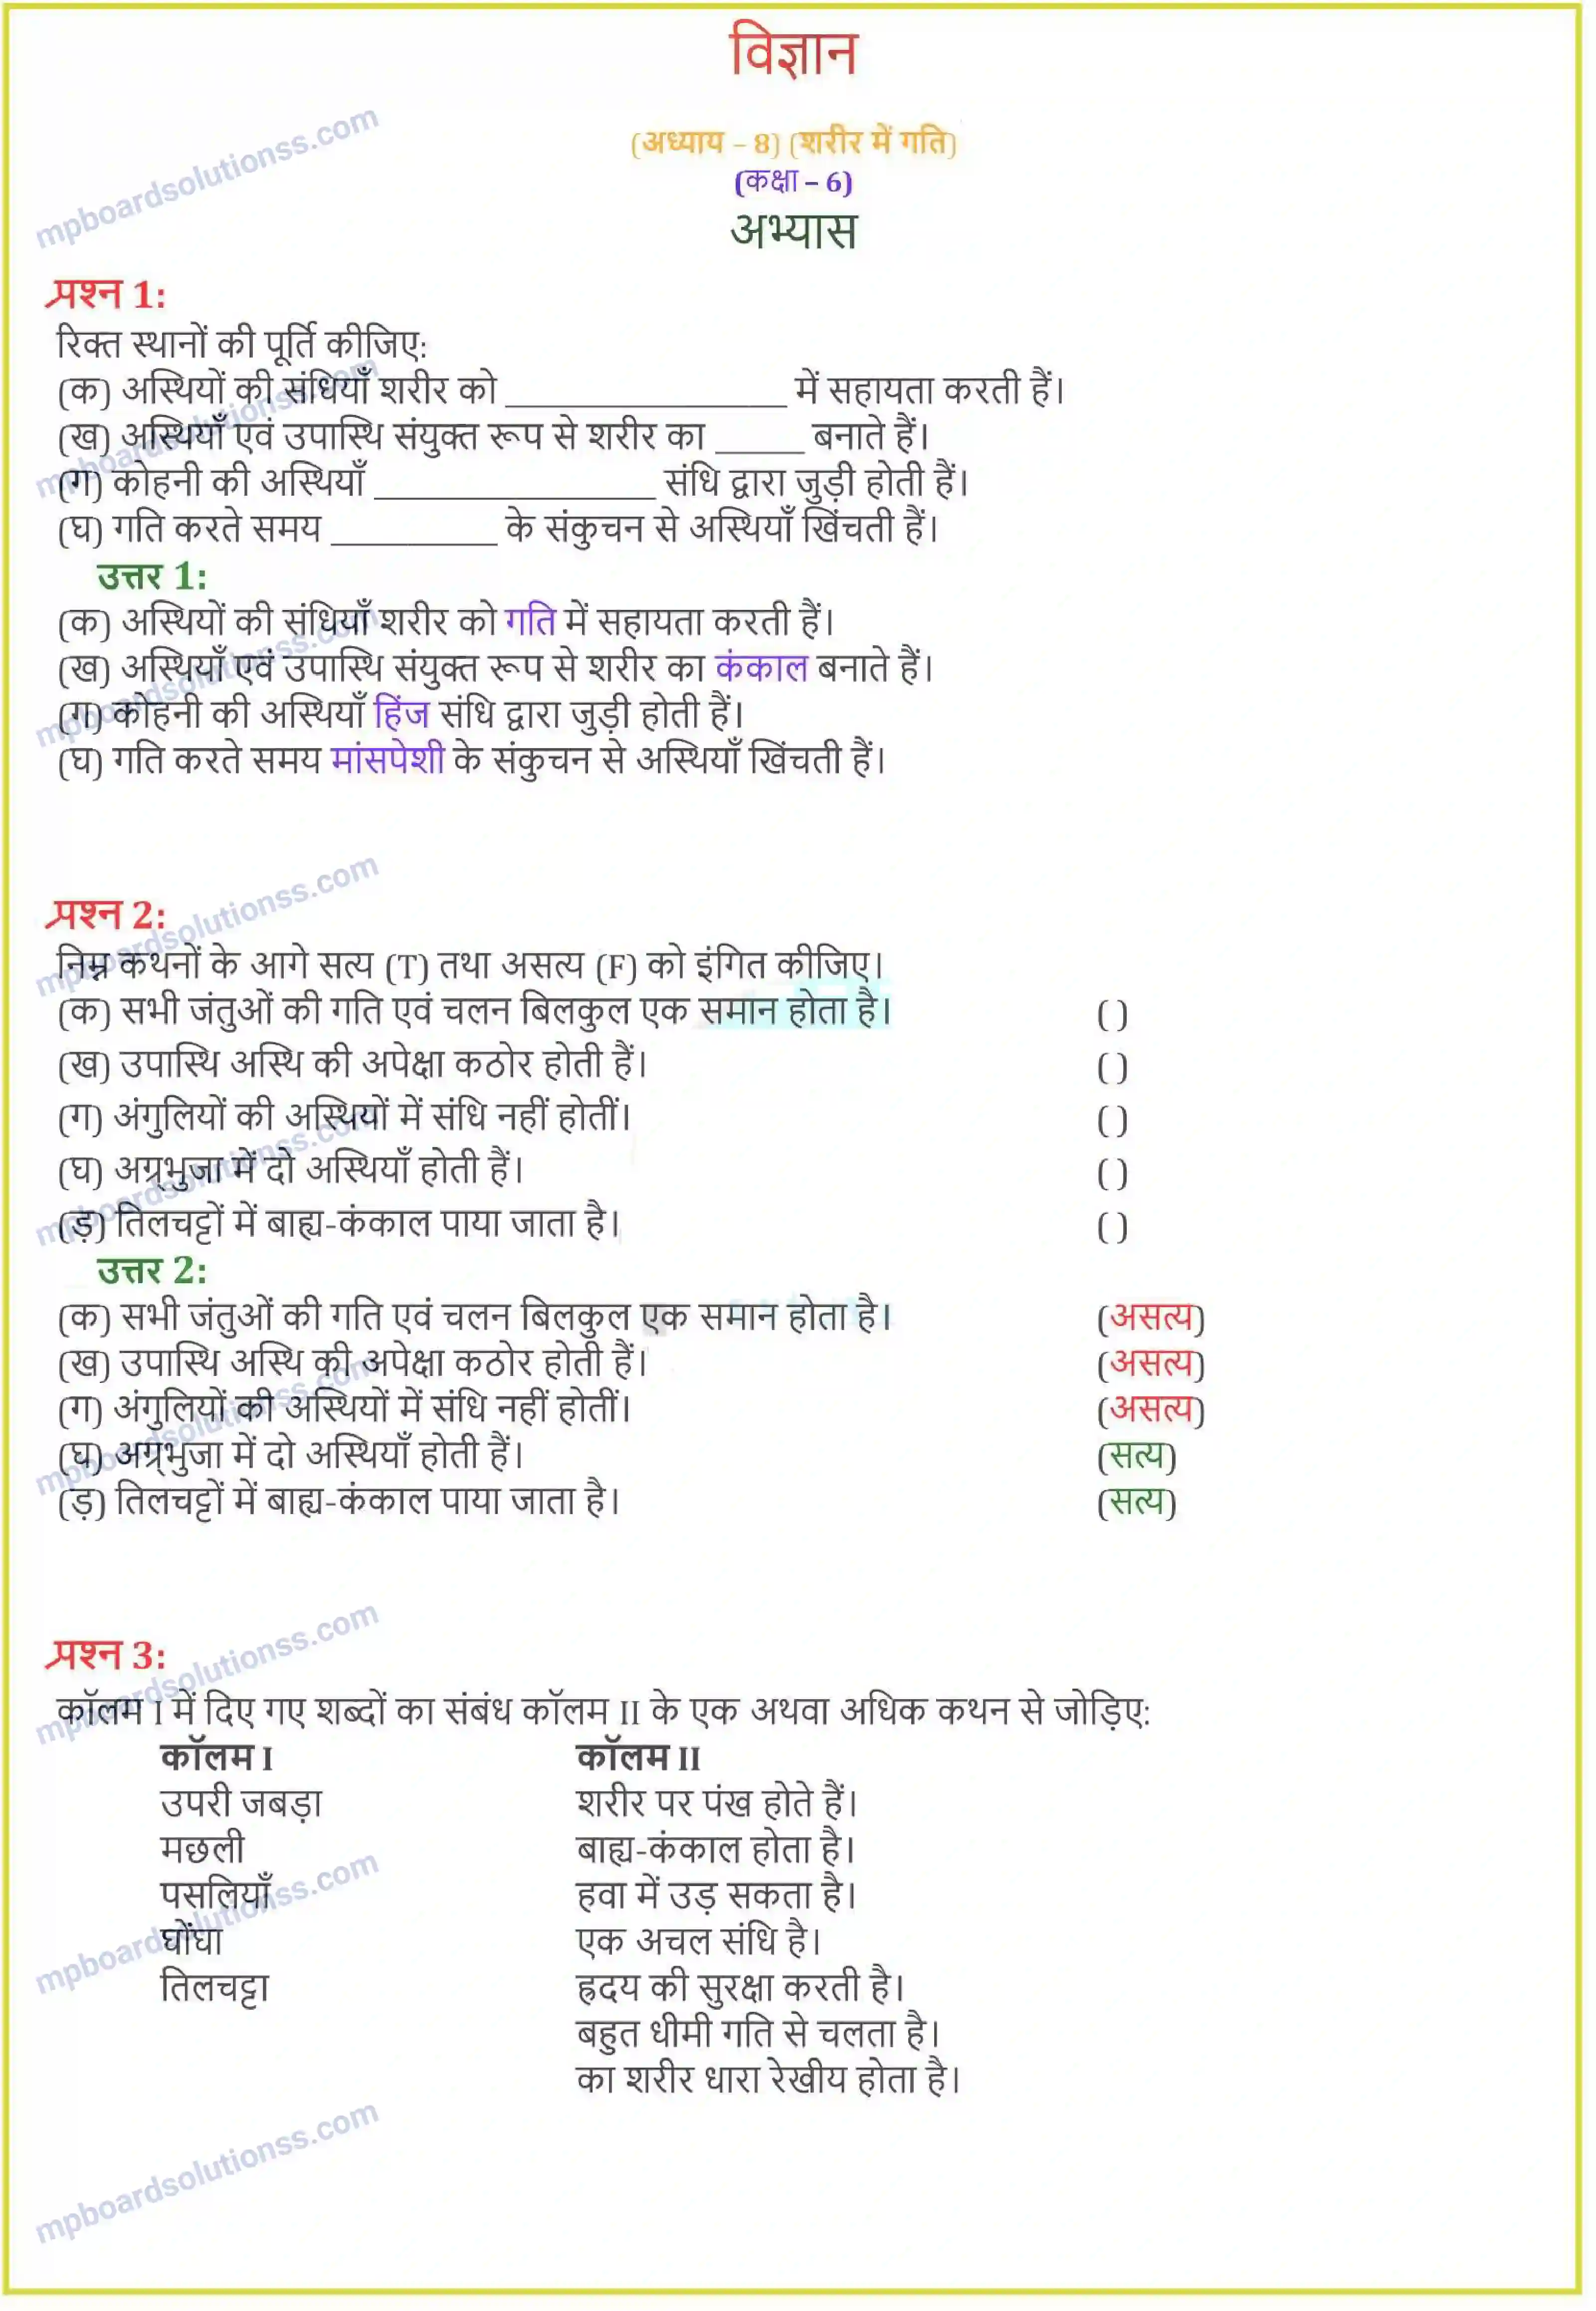 विज्ञान
(अध्याय – 8) (शरीर में गति)
(कक्षा – 6)
अभ्यास
प्रश्न 1:
रिक्त स्थानों की पूर्ति कीजिए:
(क) अस्थियों की संधियाँ शरीर को _______________ में सहायता करती हैं।
(ख) अस्थियाँ एवं उपास्थि संयुक्त रूप से शरीर का _____ बनाते हैं।
(ग) कोहनी की अस्थियाँ _______________ संधि द्वारा जुड़ी होती हैं।
(घ) गति करते समय _________ के संकुचन से अस्थियाँ खिंचती हैं।
उत्तर 1:
(क) अस्थियों की संधियाँ शरीर को गति में सहायता करती हैं।
(ख) अस्थियाँ एवं उपास्थि संयुक्त रूप से शरीर का कंकाल बनाते हैं।
(ग) कोहनी की अस्थियाँ हिंज संधि द्वारा जुड़ी होती हैं।
(घ) गति करते समय मांसपेशी के संकुचन से अस्थियाँ खिंचती हैं।
प्रश्न 2:
निम्न कथनों के आगे सत्य (T) तथा असत्य (F) को इंगित कीजिए।
(क) सभी जंतुओं की गति एवं चलन बिलकुल एक समान होता है। ( )
(ख) उपास्थि अस्थि की अपेक्षा कठोर होती हैं। ( )
(ग) अंगुलियों की अस्थियों में संधि नहीं होतीं। ( )
(घ) अग्र्भुजा में दो अस्थियाँ होती हैं। ( )
(ड़) तिलचट्टों में बाह्य-कंकाल पाया जाता है। ( )
उत्तर 2:
(क) सभी जंतुओं की गति एवं चलन बिलकुल एक समान होता है। (असत्य)
(ख) उपास्थि अस्थि की अपेक्षा कठोर होती हैं। (असत्य)
(ग) अंगुलियों की अस्थियों में संधि नहीं होतीं। (असत्य)
(घ) अग्र्भुजा में दो अस्थियाँ होती हैं। (सत्य)
(ड़) तिलचट्टों में बाह्य-कंकाल पाया जाता है। (सत्य)
प्रश्न 3:
कॉलम I में दिए गए शब्दों का संबंध कॉलम II के एक अथवा अधिक कथन से जोड़िए:
कॉलम I कॉलम II
उपरी जबड़ा शरीर पर पंख होते हैं।
मछली बाह्य-कंकाल होता है।
पसलियाँ हवा में उड़ सकता है।
घोंघा एक अचल संधि है।
तिलचट्टा ह्रदय की सुरक्षा करती है।
बहुत धीमी गति से चलता है।
का शरीर धारा रेखीय होता है।
mpboardsolutionss.com
mpboardsolutionss.com
mpboardsolutionss.com
mpboardsolutionss.com
mpboardsolutionss.com
mpboardsolutionss.com
mpboardsolutionss.com
mpboardsolutionss.com
mpboardsolutionss.com